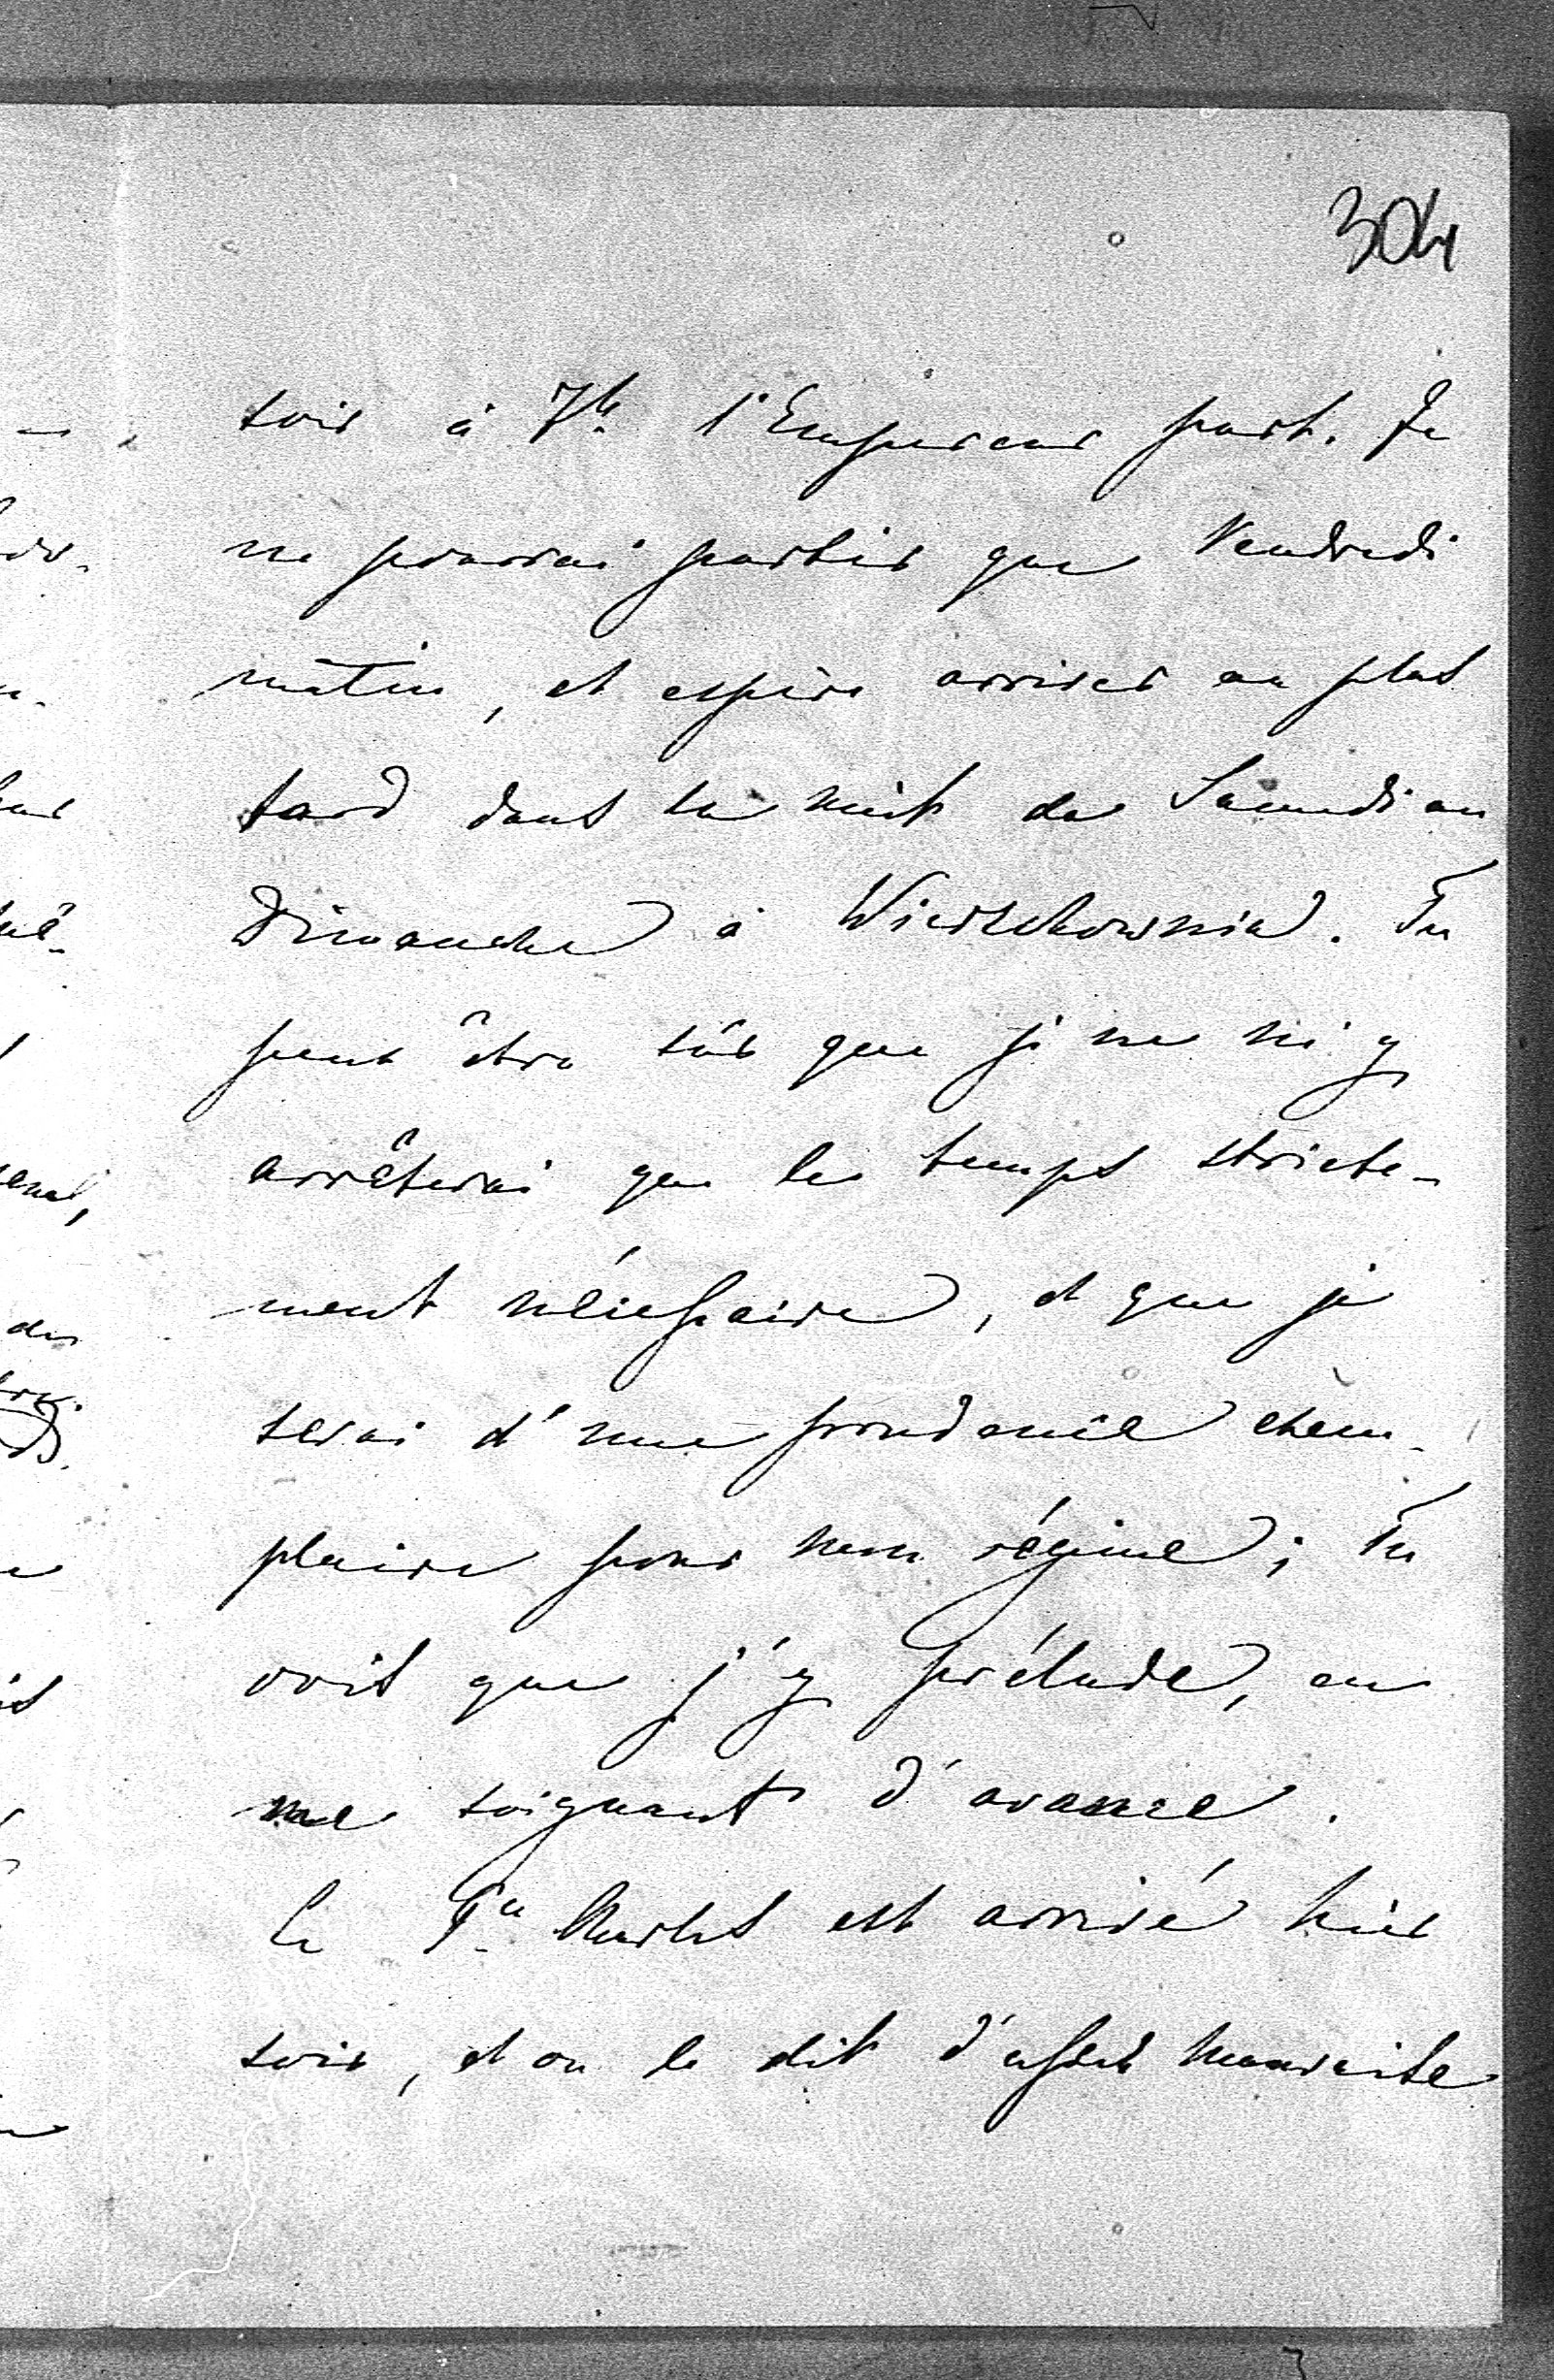 304
soir à 7h. l'Empereur part. Je
ne pourrai partir que Vendredi
matin, et espère arriver au plus
tard dans la nuit de Samedi au
Dimanche à Wierzchownia. Tu
peux être sûr que je ne m'y
arrêterai que le temps stricte-
ment nécessaire, et que je
serai d'une prudence exem-
plaire pour mon régime; Tu
vois que j'y prélude, en
me soignant d'avance.
Le Pce est arrivé hier
soir, et on le dit d'assez mauvaise